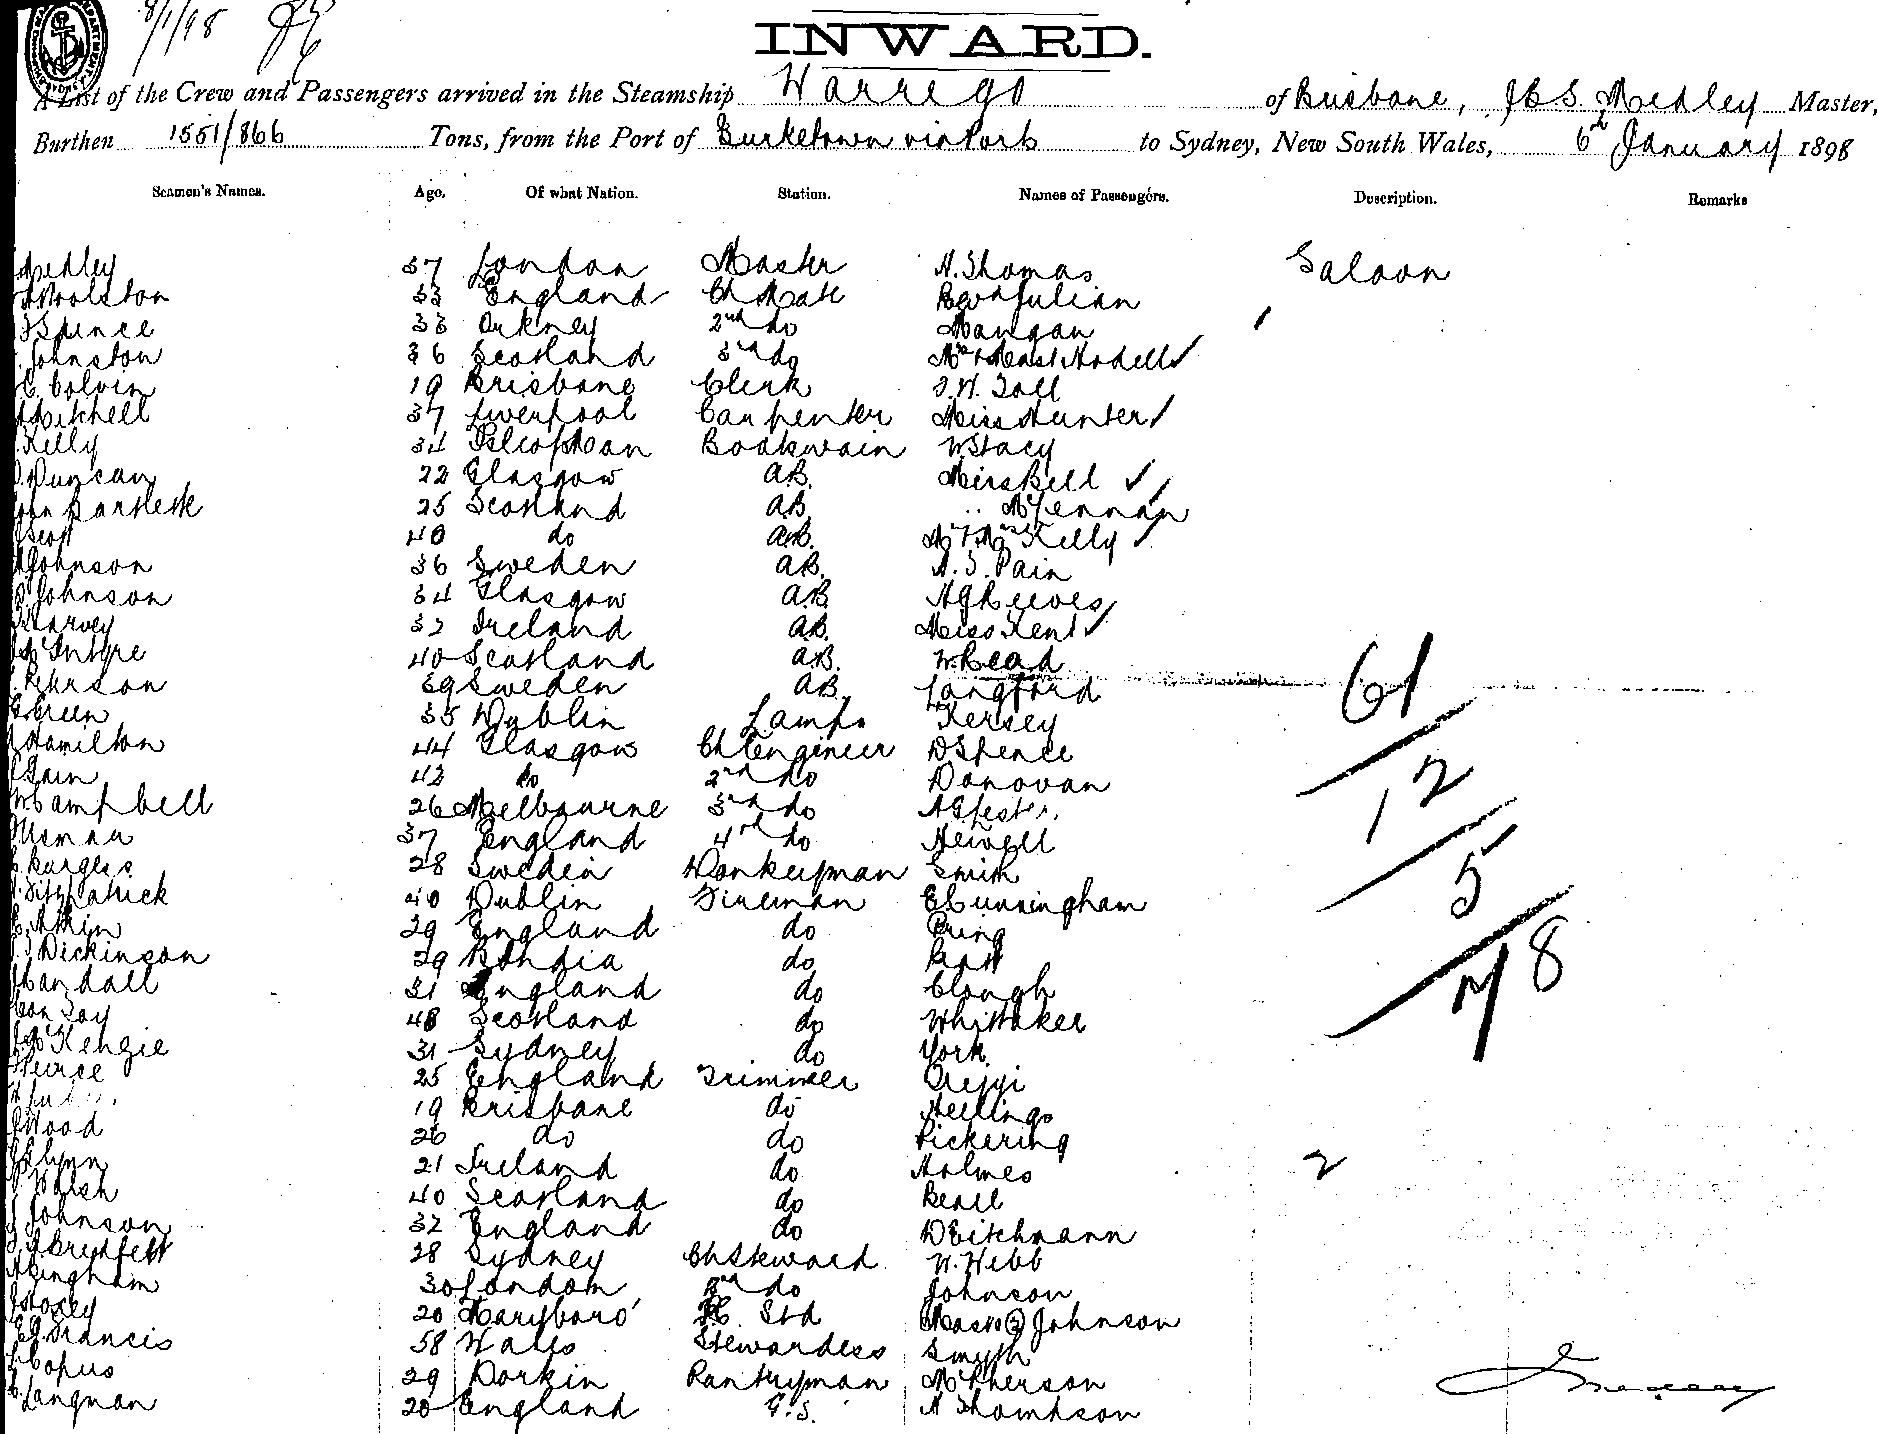 8/1/98
INWARD.
A List of the Crew and Passengers arrived in the Steamship Warrego of Brisbane, J E S Medley Master,
Burthen 1551/866 Tons, from the Port of Burketown via Ports to Sydney, New South Wales, 6th January 1898
Seamen's Names. Age. Of what Nation. Station. Names of Passengers. Description. Remarks
Medley 37 London Master A. Thomas Saloon
Woolston 33 England Ch Mate Revd Julian
Spence 33 Orkney 2nd do Mangan
Johnston 36 Scotland 3rd do Mrs & Mast Hodell
Colvin 19 Brisbane Clerk T. W. Toll
Mitchell 37 Liverpool Carpenter Miss Hunter
Kelly 34 Isle of Man Boatswain W Stacy
Duncan 22 Glasgow AB. Miss Bell
Bartlett 25 Scotland AB " McLennan
Scott 40 do AB. Mr & Mrs Kelly
Johnson 36 Sweden AB. A. S. Pain
Johnson 34 Glasgow AB A G Reeves
Harvey 32 Ireland AB. Miss Kent
McIntyre 40 Scotland AB. W. Read
Pehrson 39 Sweden AB. Langford 61
Green 35 Dublin Lamps Kersey
Hamilton 44 Glasgow Ch Engineer D Spence
Bain 42 do 2nd do Donovan 12
Campbell 26 Melbourne 3rd do
37 England 4th do Newell
Burgess 28 Sweden Donkeyman Smith 5
Fitzpatrick 40 Dublin Fireman E Cunningham
29 England do Pring
Dickinson 29 do 78
Randall 31 England do Clough
48 Scotland do Whittaker
McKenzie 31 Sydney do York
Peirce 25 England Trimmer
19 Brisbane do Hellings
Wood 26 do do Pickering
Flynn 21 Ireland do Holmes 2
Walsh 40 Scotland do Beall
Johnson 32 England do D Eitchmann
28 Sydney Ch Steward W. Hebb
Bingham 30 London 2nd do Johnson
20 Maryboro' Std Mast (2) Johnson
Francis 58 Wales Stewardess Smyth
Copus 29 Dorkin Pantryman McPherson
Langman 20 England G.S. A Thompson